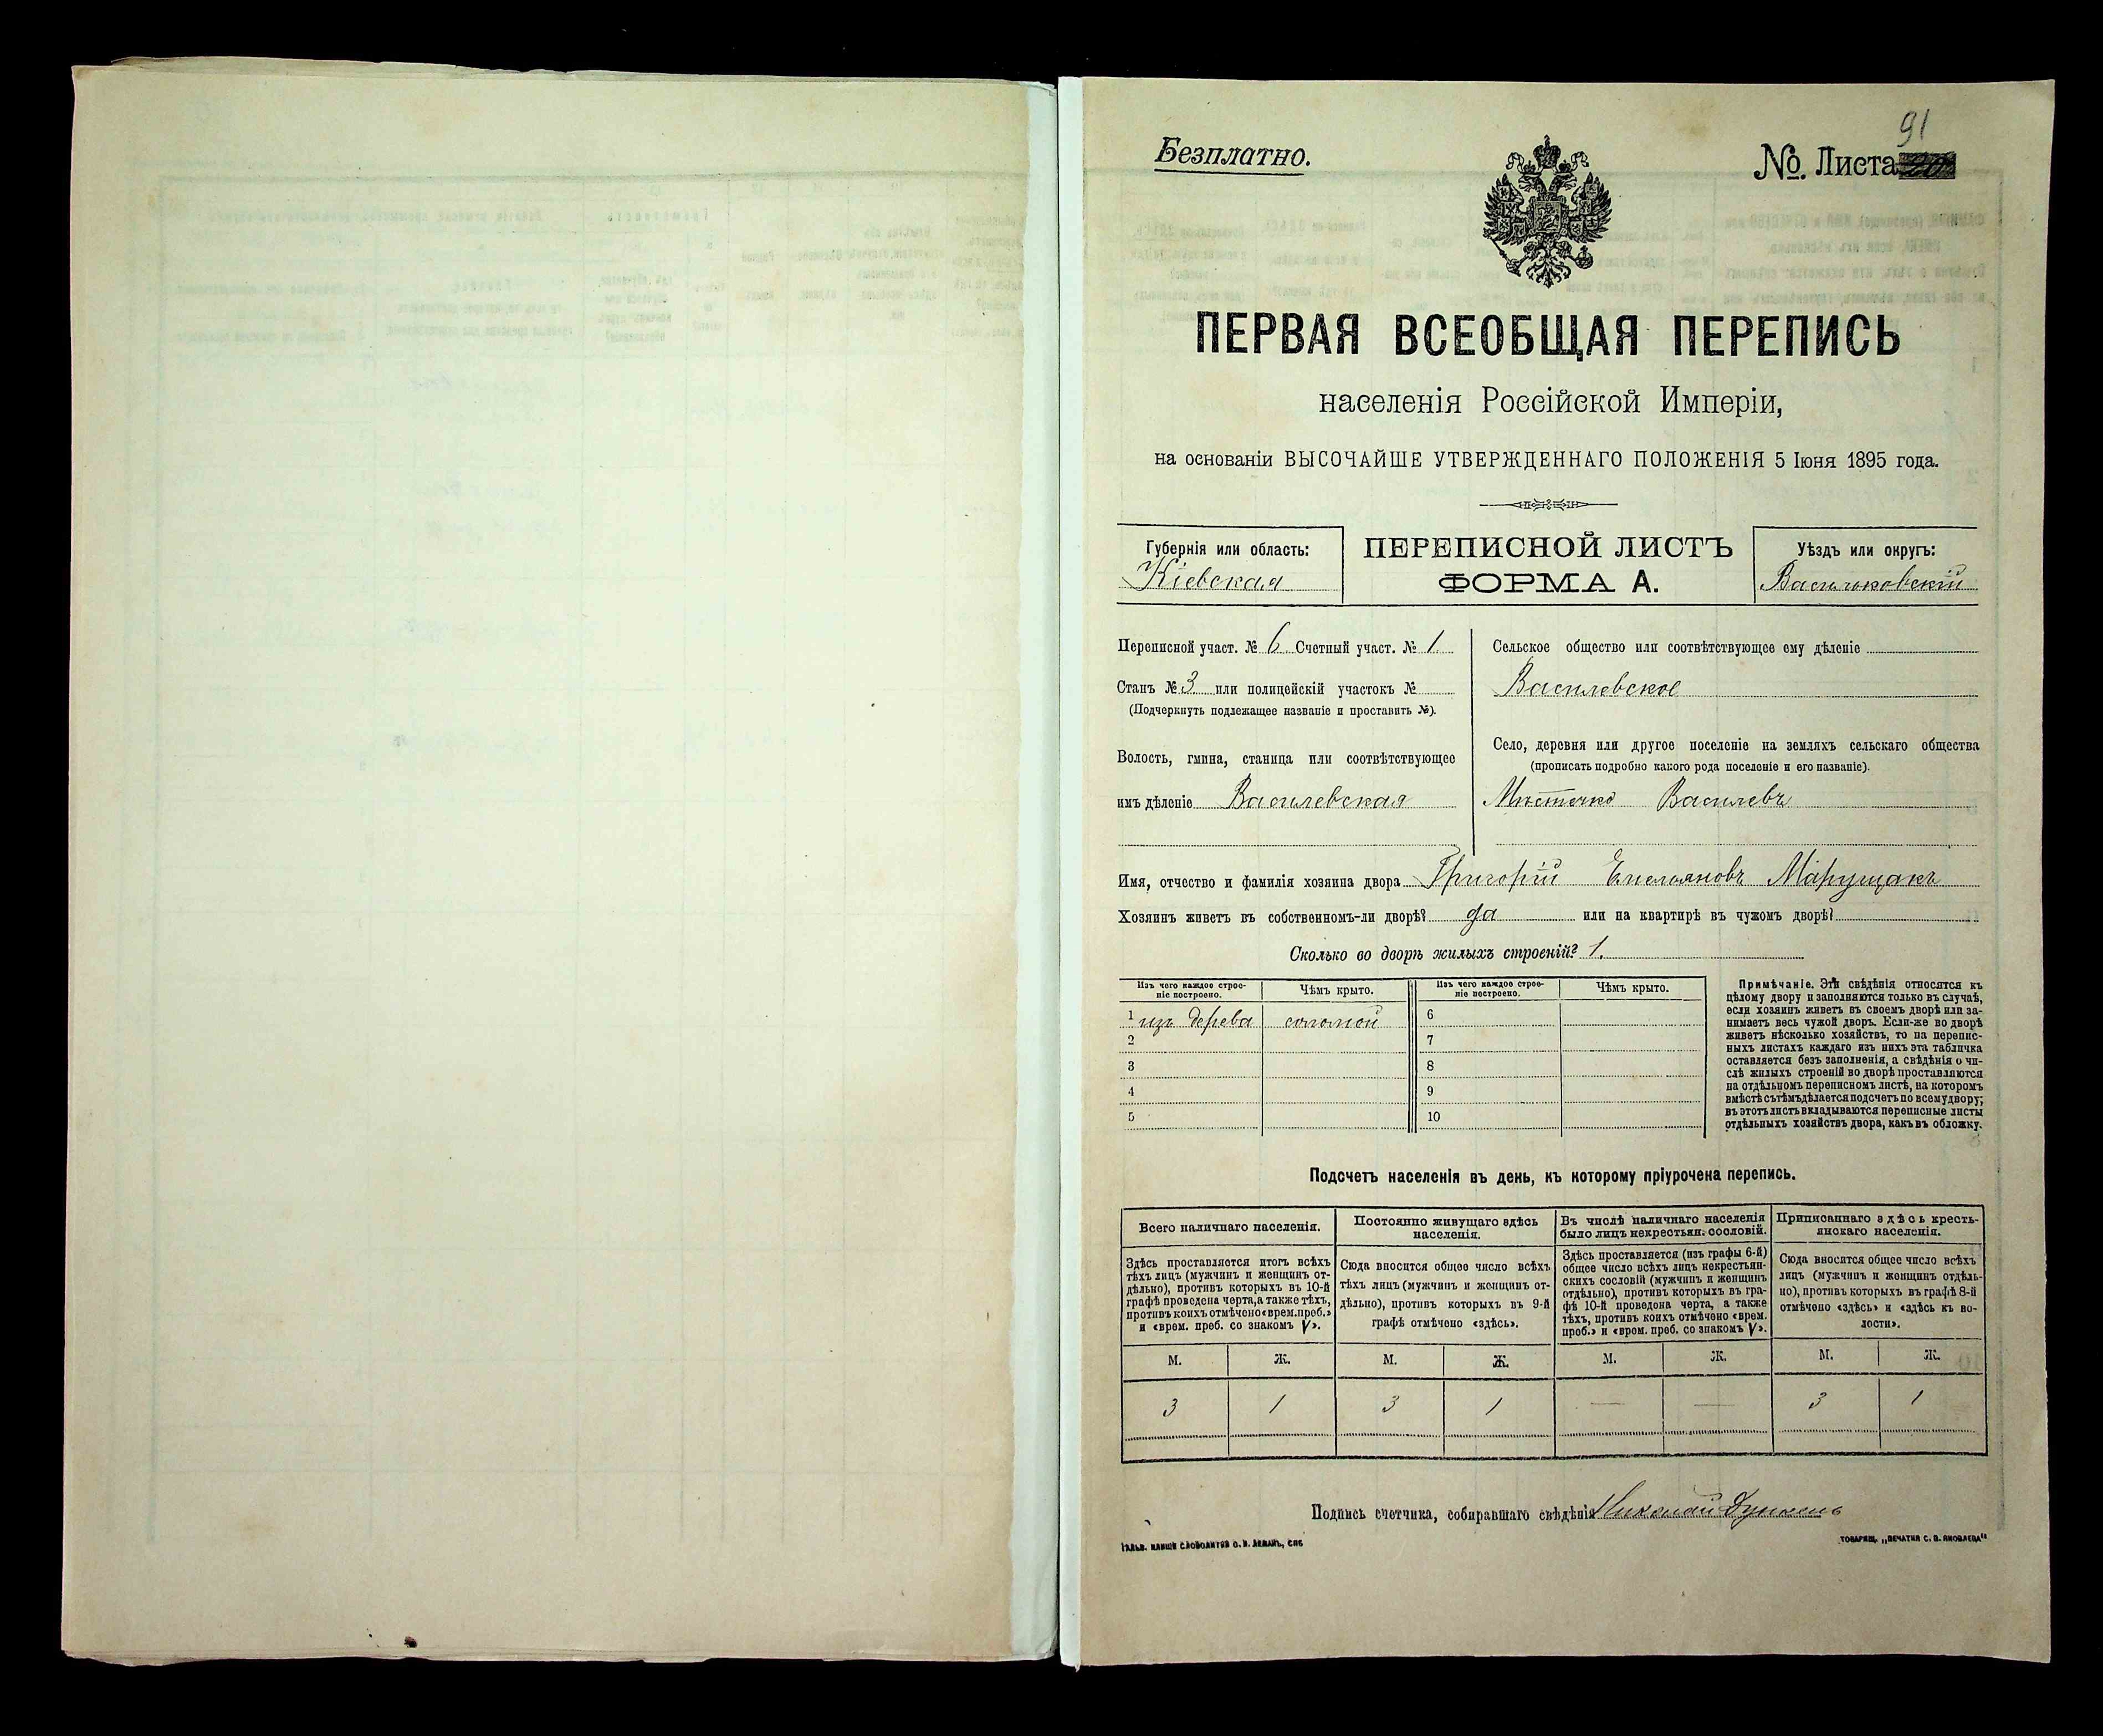 91
Безплатно.
№. Листа
ПЕРВАЯ ВСЕОБЩАЯ ПЕРЕПИСЬ
населенія Россійской Имперіи,
на основаніи ВЫСОЧАЙШЕ УТВЕРЖДЕННАГО ПОЛОЖЕНІЯ 5 Іюня 1895 года.
Губернія или область:
Кіевская
ПЕРЕПИСНОЙ ЛИСТЪ
ФОРМА А.
Уѣздъ или округъ:
Васильковскій
Переписной участ. № 6 Счетный участ. № 1
Станъ № 3 или полицейскій участокъ №
(Подчеркнуть подлежащее названіе и проставить №).
Волость, гмина, станица или соотвѣтствующее
имъ дѣленіе Василевская
Сельское общество или соотвѣтствующее ему дѣленіе
Василевское
Село, деревня или другое поселеніе на земляхъ сельскаго общества
(прописать подробно какого рода поселеніе и его названіе).
Мѣстечко Василевъ
Имя, отчество и фамилія хозяина двора Григорій Емельяновъ Марущакъ
Хозяинъ живетъ въ собственномъ-ли дворѣ? да или на квартирѣ въ чужомъ дворѣ?
Сколько во дворѣ жилыхъ строеній? 1.
Изъ чего каждое строе-
ніе построено.
Чѣмъ крыто.
Изъ чего каждое строе-
ніе построено.
Чѣмъ крыто.
1 изъ дерева соломой 6
2 7
3 8
4 9
5 10
Примѣчаніе. Эти свѣдѣнія относятся къ
цѣлому двору и заполняются только въ случаѣ,
если хозяинъ живетъ въ своемъ дворѣ или за-
нимаетъ весь чужой дворъ. Если-же во дворѣ
живетъ нѣсколько хозяйствъ, то на перепис-
ныхъ листахъ каждаго изъ нихъ эта табличка
оставляется безъ заполненія, а свѣдѣнія о чи-
слѣ жилыхъ строеній во дворѣ проставляются
на отдѣльномъ переписномъ листѣ, на которомъ
вмѣстѣ съ тѣмъ дѣлается подсчетъ по всему двору;
въ этотъ листъ вкладываются переписные листы
отдѣльныхъ хозяйствъ двора, какъ въ обложку.
Подсчетъ населенія въ день, къ которому пріурочена перепись.
Всего наличнаго населенія.
Здѣсь проставляется итогъ всѣхъ
тѣхъ лицъ (мужчинъ и женщинъ от-
дѣльно), противъ которыхъ въ 10-й
графѣ проведена черта, а также тѣхъ,
противъ коихъ отмѣчено «врем. преб.»
и «врем. преб. со знакомъ V».
Постоянно живущаго здѣсь
населенія.
Сюда вносится общее число всѣхъ
тѣхъ лицъ (мужчинъ и женщинъ от-
дѣльно), противъ которыхъ въ 9-й
графѣ отмѣчено «здѣсь».
Въ числѣ наличнаго населенія
было лицъ некрестьян. сословій.
Здѣсь проставляется (изъ графы 6-й)
общее число всѣхъ лицъ некрестьян-
скихъ сословій (мужчинъ и женщинъ
отдѣльно), противъ которыхъ въ гра-
фѣ 10-й проведена черта, а также
тѣхъ, противъ коихъ отмѣчено «врем.
преб.» и «врем. преб. со знакомъ V».
Приписаннаго здѣсь кресть-
янскаго населенія.
Сюда вносится общее число всѣхъ
лицъ (мужчинъ и женщинъ отдѣль-
но), противъ которыхъ въ графѣ 8-й
отмѣчено «здѣсь» и «здѣсь къ во-
лости».
М. Ж. М. Ж. М. Ж. М. Ж.
3 1 3 1 — — 3 1
Подпись счетчика, собиравшаго свѣдѣнія Николай
ТОВАРИЩ. „ПЕЧАТНЯ С. П. ЯКОВЛЕВА“